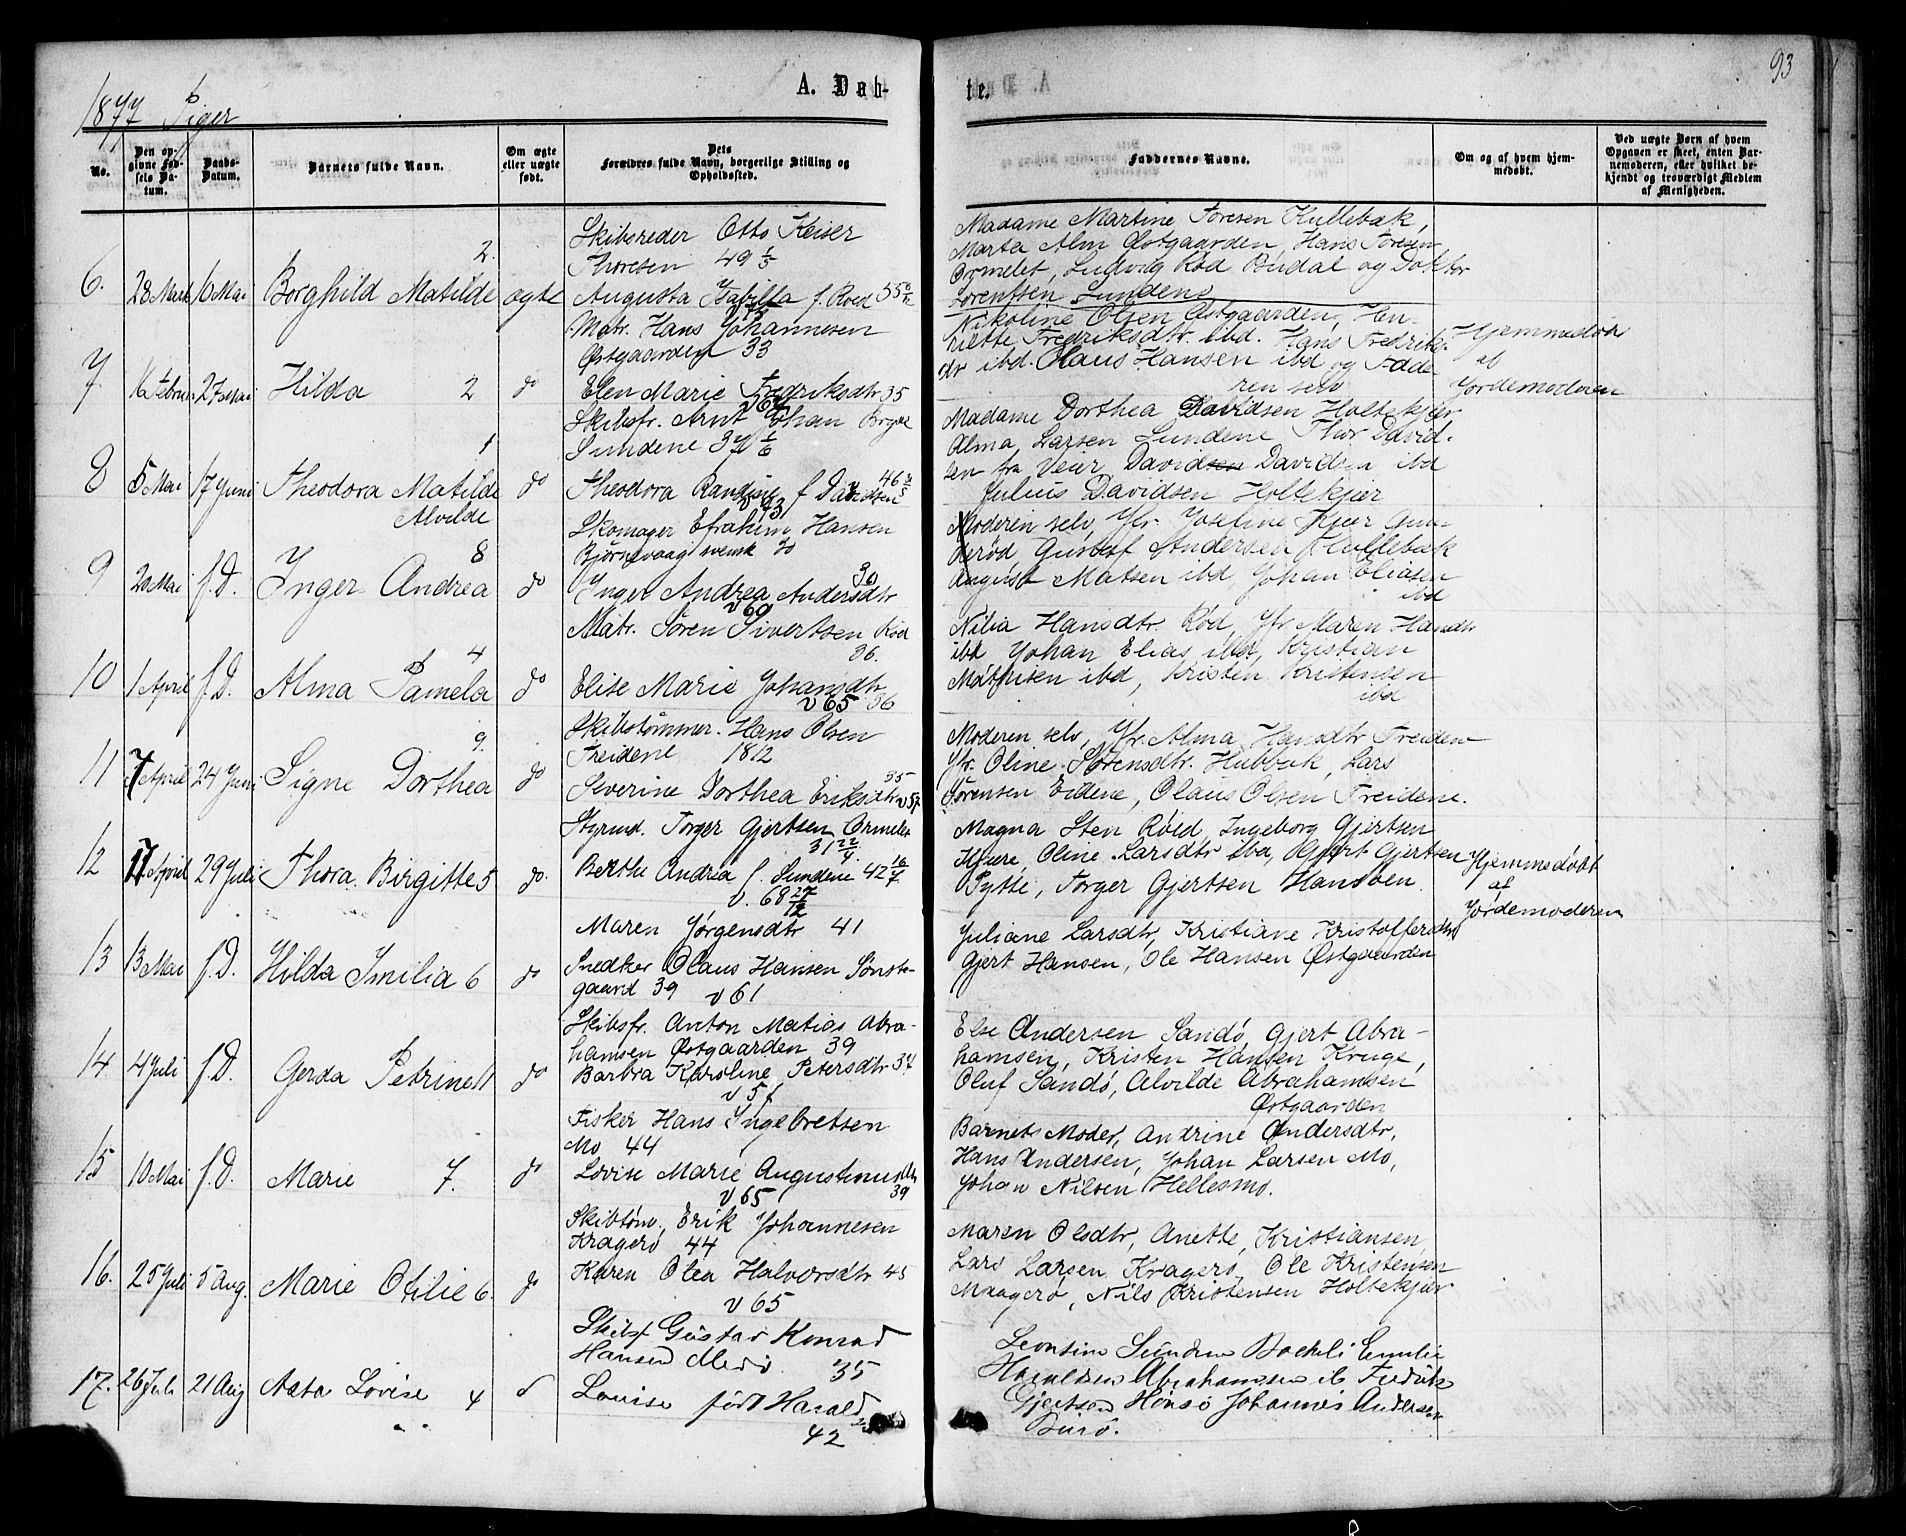 93
1877 Piger
A. Døb-
te.
No.
Den opgivne Fødsels Datum.
Daabs-Datum.
Barnets fulde Navn.
Om ægte eller uægte født.
Dets Forældres fulde Navn, borgerlige Stilling og Opholdssted.
Faddernes Navne.
Om og af hvem hjemmedøbt.
Ved uægte Børn af hvem Opgaven er skeet, enten Barnemoderen, eller hvilket bekjendt og troværdigt Medlem af Menigheden.
6. 28 Marts 6 Mai Borghild Matilde 2. ægte
Skibsreder Otto Keiser
Thoresen 49 1/3
Augusta Isabilla f. Roed 55
Madame Martine Toresen Kullebæk,
Marta Alm Østgaarden, Hans Toresen
Ormelet, Ludvig Rød Budal og Doktor
Lorentsen Lundene
7 16 Febru 27 Mai Hilda 2 do
Matr. Hans Johannesen
Østgaarden 33
Elen Marie Fredriksdtr 35
Nikoline Olsen Østgaarden, Hen-
riette Fredriksdtr ibd. Hans Fredrik-
ibd. Olaus Hansen ibd og Fade
ren selv
Hjemmedøbt
af
Jordemoderen
8 5 Mai 17 Juni Theodora Matilde 1 do
Alvilde
Skibsfr. Arnt Johan Bryde
Sundene 37 1/6
Theodora Randine f Davidsen 46
v 73
Madame Dorthea Davidsen Holtekjær
Alma Larsen Sundene Thor David-
sen fra Veier Davidsen Davidsen ibd
Julius Davidsen Holtekjær
9 20 Mai f.D. Inger Andrea 8 do
Skomager Efrahim Hansen
Bjørnevaag svensk 30
Inger Andrea Andersdtr 30
v 60
Moderen selv, Jfr. Josefine Kjær
Gustaf Andersen Kullebæk
August Matsen ibd, Johan Eliasen
ibd
10 1 April f.D. Alma Pamela 4 do
Matr. Søren Sivertsen Rød
36.
Elise Marie Johansdtr
v 65 36
Nilia Hansdtr Rød, Jfr Maren Hansdtr
ibd Johan Elias ibd, Kristian
Mathisen ibd, Kristen Kristensen
ibd
11 7 April 24 Juni Signe Dorthea 9. do
Skibstømmer. Hans Olsen
Treidene 1812
Severine Dorthea Eriksdtr 35 v 57
Moderen selv, Jfr. Alma Hansdtr Treiden
Jfr. Oline Sørensdtr. Hubbuk, Lars
Sørensen Eidene, Olaus Olsen Treidene.
12 17 April 29 Juli Thora Birgitte 5 do.
Styrmd. Torger Gjertsen Ormelet
31 22/4.
Berthe Andrea f. Sundene 42 16/7
v. 68 27/12
Magna Sten Røed, Ingeborg Gjertsen
Hjære, Oline Larsdtr ibd, Gjert Gjertsen
Pytte, Torger Gjertsen Hansoen.
Hjemmedøbt
af
Jordemoderen
13 13 Mai f.D. Hilda Imilia 6 do
Maren Jørgensdtr 41
Snedker Olaus Hansen Sønst-
gaard 39 v 61
Juliane Larsdtr, Kristiane Kristoffersdtr
Gjert Hansen, Ole Hansen Østgaarden
14. 4 Juli f.D. Gerda Petrine 11 do
Skibsfr. Anton Matias Abra-
hamsen Østgaarden 39
Barbra Karoline Petersdtr 37
Else Andersen Sandø, Gjert Abra-
hamsen, Kristen Hansen Kruge,
Oluf Sandø, Alvilde Abrahamsen
Østgaarden
15 10 Mai f.D. Marie 7. do
Fisker Hans Ingebretsen
Mo 44
Lovise Marie Augustinusdtr
v 65 39
Barnets Moder, Andrine Andersdtr,
Hans Andersen, Johan Larsen Mo,
Johan Nilsen Hellesmo.
16. 25 Juli 5 Aug. Marie Otilie 6. do
Skibtøm. Erik Johannesen
Kragerø 44
Karen Olea Halvorsdtr 45
v 65
Maren Olsdtr, Anette Kristiansen
Lars Larsen Kragerø, Ole Kristensen
Magerø, Nils Kristensen Holtekjær
17. 26 Juli 21 Aug Asta Lovise 4 d
Skibsf Gustav Konrad
Hansen Medø 35
Louise født Harald
42
Leontine Sunden Bockeli Emilie
Haraldsen Abrahamsen ib Fredrik
Gjertsen Hønsø Johannes Andersen
Burø.